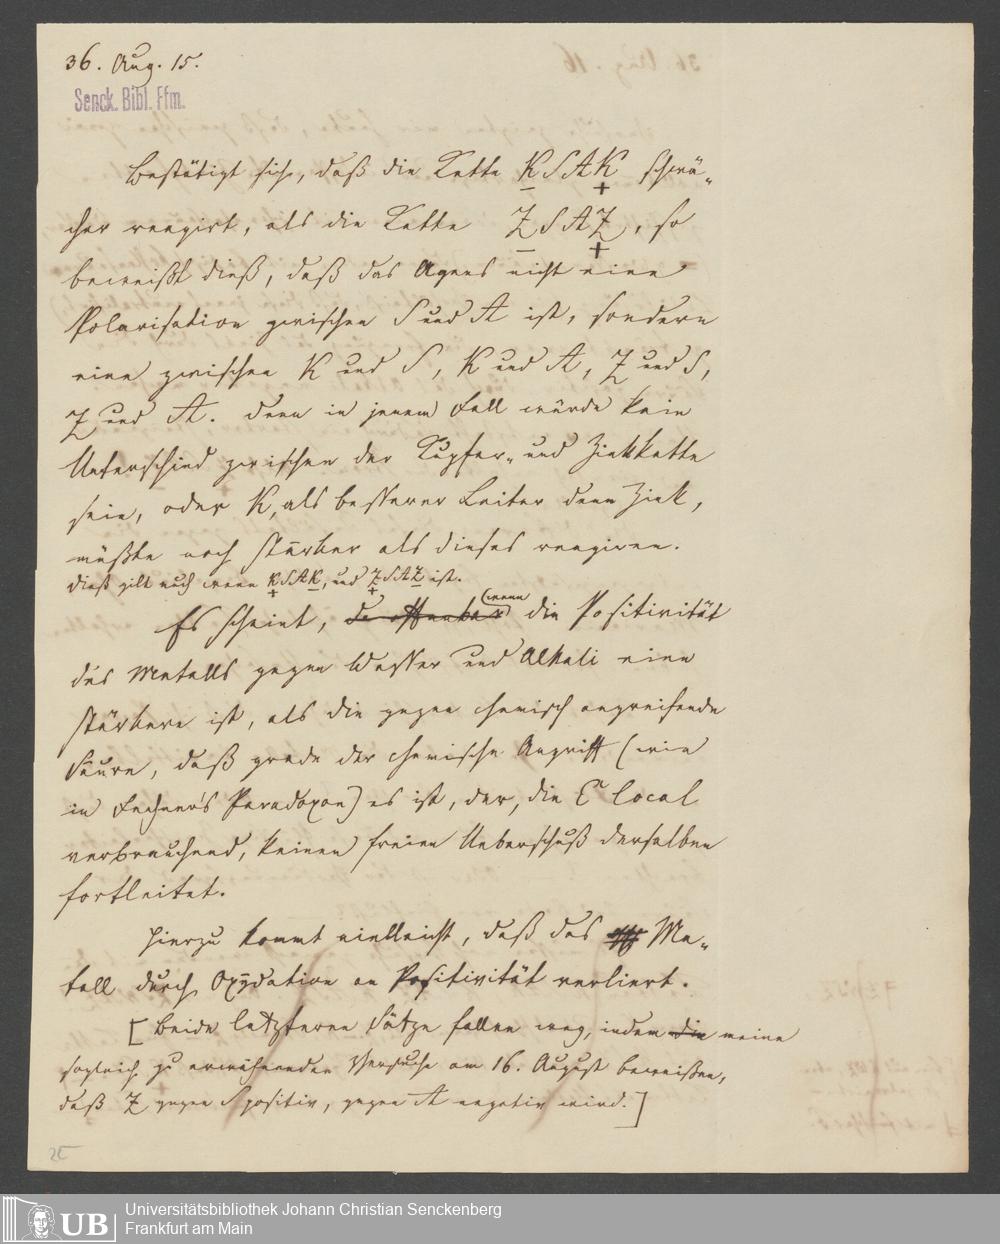 36. Aug. 15.
Senck. Bibl. Ffm.
Bestätigt sich, daß die Kette K S A K schwä-
- +
cher reagirt, als die Kette Z S A Z, so
- +
beweißt dieß, daß das Agens nicht eine
Polarisation zwischen S und A ist, sondern
eine zwischen K und S, K und A, Z und S,
Z und A. Denn in jenem Fall würde kein
Unterschied zwischen der Kupfer- und Zinkkette
sein, oder K, als besserer Leiter denn Zink,
müßte noch stärker als dieses reagiren.
Dieß gilt auch wenn K S A K, und Z S A Z ist.
+ - + -
Es scheint, da offenbar wenn die Positivität
des Metalls gegen Wasser und Alkali eine
stärkere ist, als die gegen chemisch angreifende
Säure, daß grade der chemische Angriff (wie
in Fechner's Paradoxon) es ist, der, die E local
verbrauchend, keinen freien Ueberschuß derselben
fortleitet.
Hierzu kommt vielleicht, daß das Me-
tall durch Oxydation an Positivität verliert.
[Beide letzteren Sätze fallen weg, indem die meine
sogleich zu erwähnenden Versuche am 16. August beweißen,
daß Z gegen S positiv, gegen A negativ wird.]
UB
Universitätsbibliothek Johann Christian Senckenberg
Frankfurt am Main